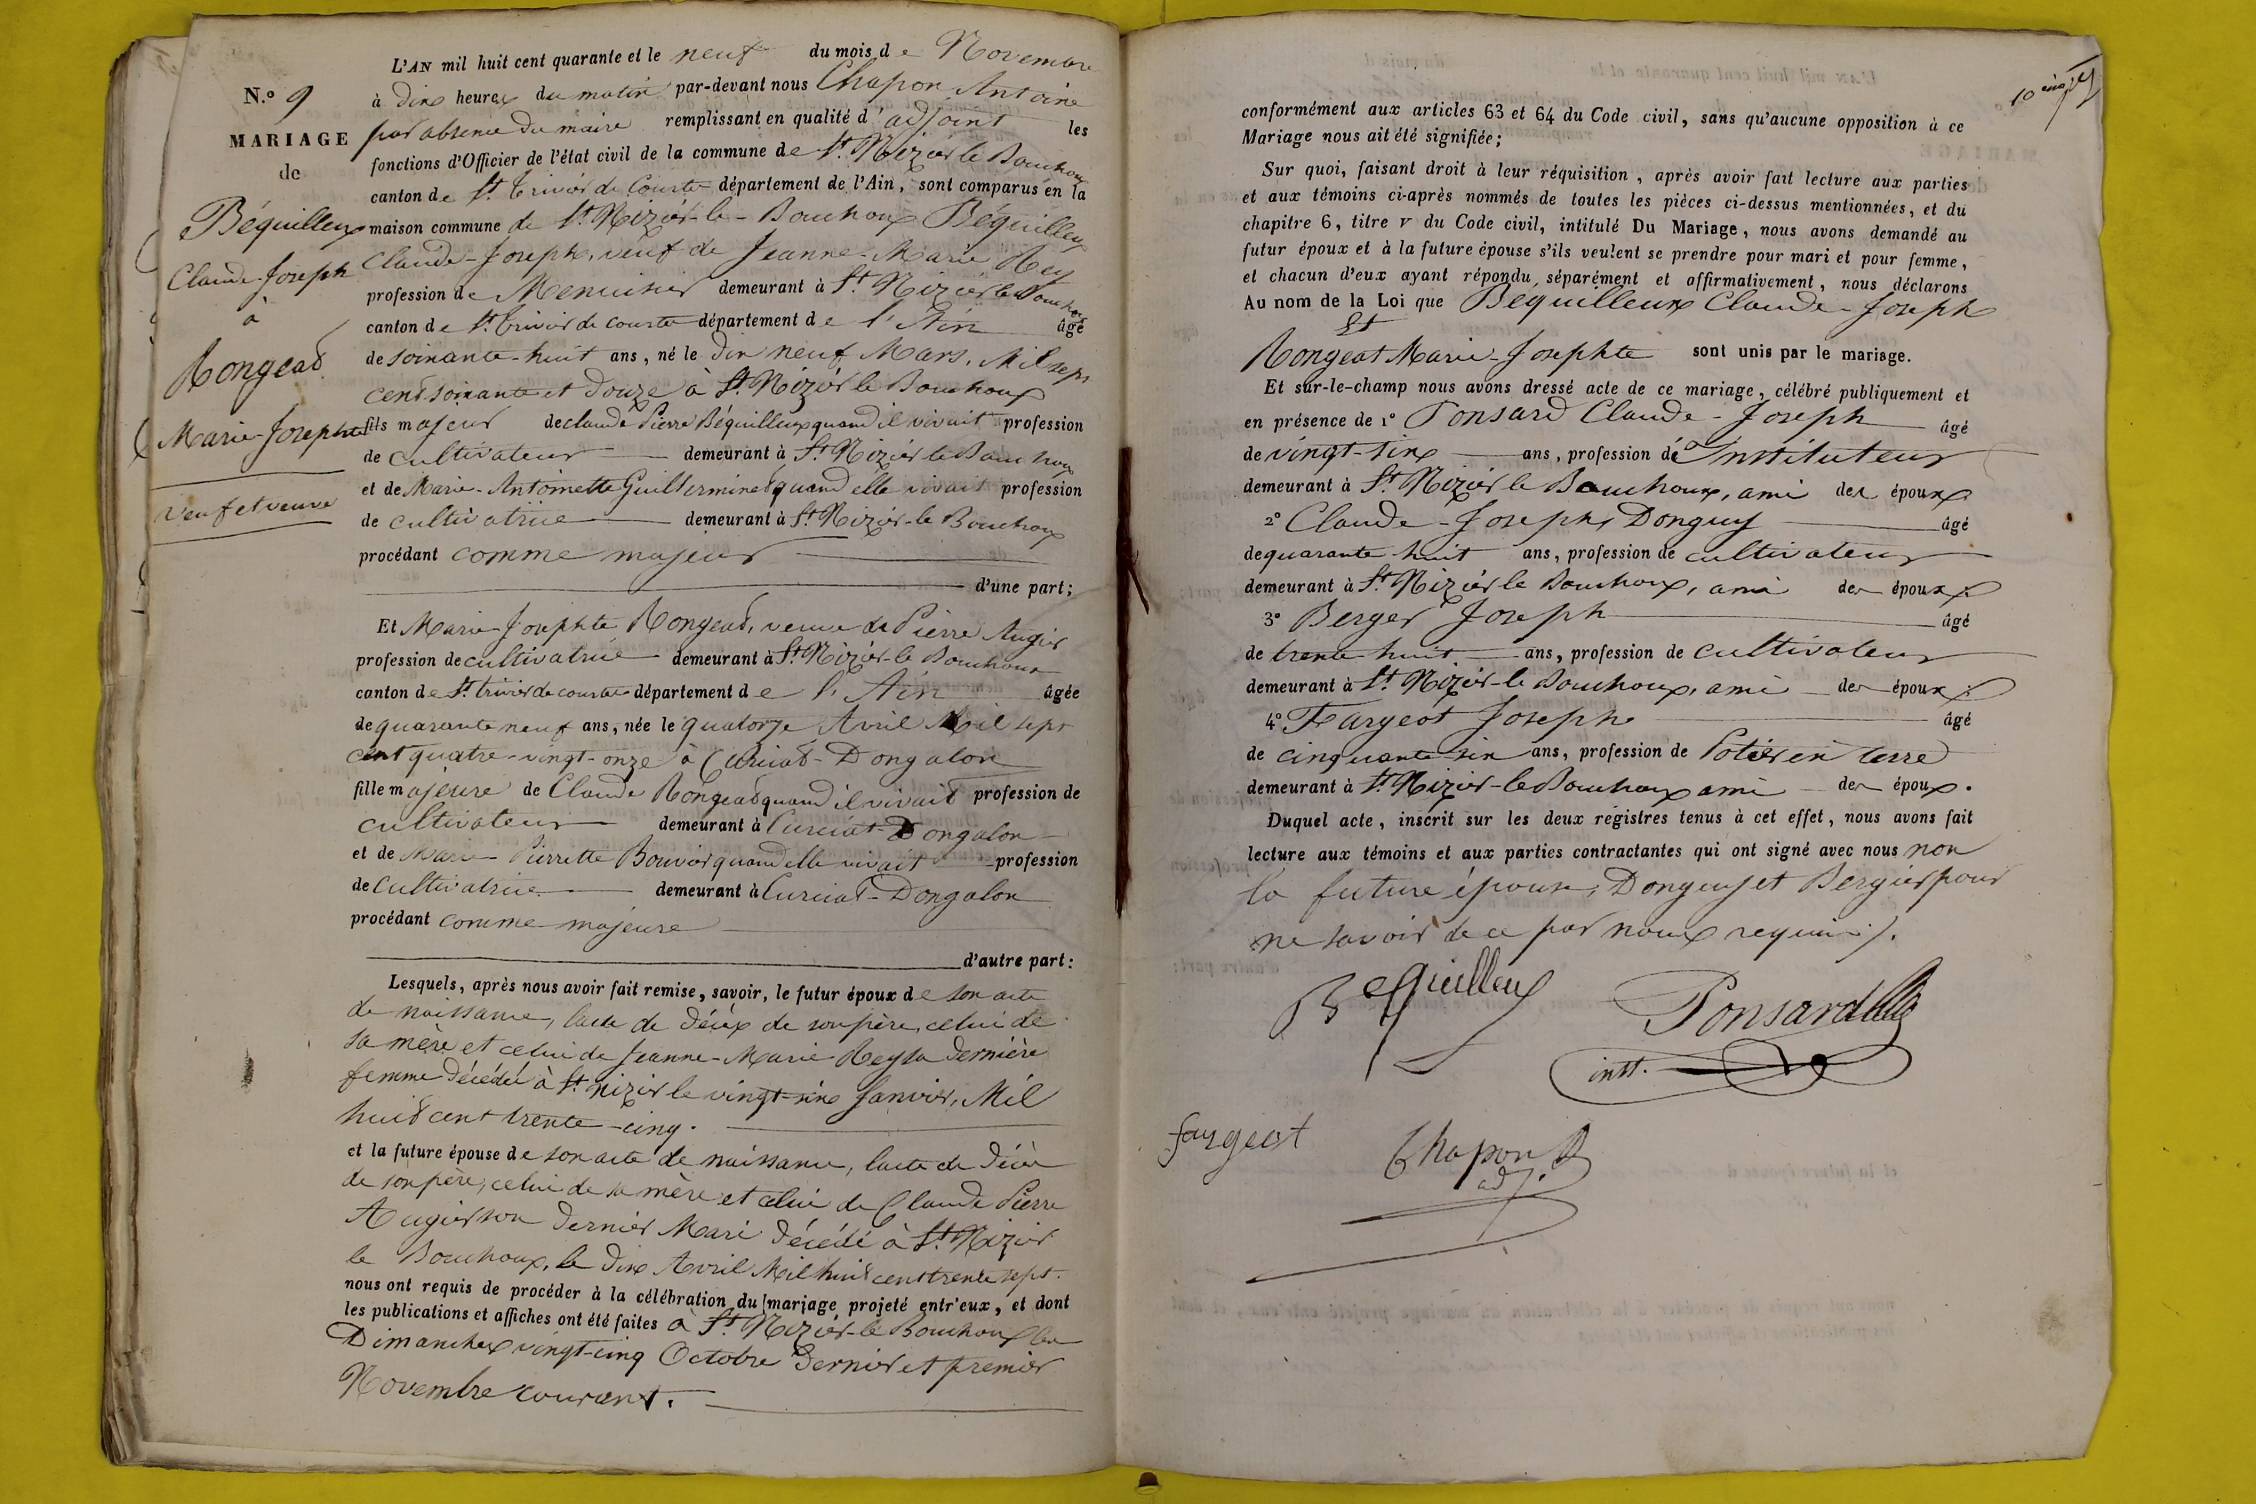 N.º 9
MARIAGE
de
Béquilleux
Claude-Joseph
à
Rongead
Marie-Josephte
Veuf et veuve
L'AN mil huit cent quarante et le neuf du mois de Novembre
à dix heures du matin par-devant nous Chapon Antoine
par absence du maire remplissant en qualité d'adjoint les
fonctions d'Officier de l'état civil de la commune de St. Nizier le Bouchoux
canton de St. Trivier de Courte département de l'Ain, sont comparus en la
maison commune de St. Nizier-le-Bouchoux Béquilleux
Claude-Joseph, veuf de Jeanne-Marie Rey
profession de Menuisier demeurant à St. Nizier le Bouchoux
canton de St. Trivier de courte département de l'Ain âgé
de soixante-huit ans, né le dix neuf Mars, Mil sept
cent soixante et douze à St. Nizier le Bouchoux
fils majeur de claude Pierre Béquilleux quand il vivait profession
de cultivateur demeurant à St. Nizier le Bouchoux
et de Marie-Antoinette Guillerminet quand elle vivait profession
de cultivatrice demeurant à St. Nizier-le Bouchoux
procédant comme majeur
d'une part;
Et Marie-Josephte Rongead, veuve de Pierre Augier
profession de cultivatrice demeurant à St. Nizier-le Bouchoux
canton de St. trivier de courte département de l'Ain âgée
de quarante neuf ans, née le quatorze Avril Mil sept
cent quatre-vingt-onze à Curciat-Dongalon
fille majeure de Claude Rongead quand il vivait profession de
cultivateur demeurant à Curciat-Dongalon
et de Marie-Pierrette Bouvier quand elle vivait profession
de cultivatrice demeurant à Curciat-Dongalon
procédant comme majeure
d'autre part:
Lesquels, après nous avoir fait remise, savoir, le futur époux de son acte
de naissance, l'acte de décès de son père, celui de
sa mère et celui de Jeanne-Marie Rey sa dernière
femme décédée à St. nizier le vingt-six Janvier, Mil
huit cent trente-cinq.
et la future épouse de son acte de naissance, l'acte de décès
de son père, celui de sa mère et celui de Claude Pierre
Augier son dernier Mari décédé à St. Nizier
le Bouchoux, le dix Avril Mil huit cent trente sept.
nous ont requis de procéder à la célébration du mariage projeté entr'eux, et dont
les publications et affiches ont été faites à St. Nizier-le Bouchoux les
Dimanches vingt-cinq Octobre dernier et premier
Novembre courant.
conformément aux articles 63 et 64 du Code civil, sans qu'aucune opposition à ce
Mariage nous ait été signifiée;
Sur quoi, faisant droit à leur réquisition, après avoir fait lecture aux parties
et aux témoins ci-après nommés de toutes les pièces ci-dessus mentionnées, et du
chapitre 6, titre V du Code civil, intitulé Du Mariage, nous avons demandé au
futur époux et à la future épouse s'ils veulent se prendre pour mari et pour femme,
et chacun d'eux ayant répondu séparément et affirmativement, nous déclarons
Au nom de la Loi que Béquilleux Claude-Joseph
Et
Rongeat Marie-Josephte sont unis par le mariage.
Et sur-le-champ nous avons dressé acte de ce mariage, célébré publiquement et
en présence de 1º Ponsard Claude-Joseph âgé
de vingt-six ans, profession d'Instituteur
demeurant à St. Nizier le Bouchoux, ami des époux
2º Claude-Joseph Donguy âgé
de quarante huit ans, profession de cultivateur
demeurant à St. Nizier le Bouchoux, ami des époux
3º Berger Joseph âgé
de trente huit ans, profession de cultivateur
demeurant à St. Nizier-le Bouchoux, ami des époux
4º Fargeot Joseph âgé
de cinquante-six ans, profession de Potier en terre
demeurant à St. Nizier-le Bouchoux ami des époux.
Duquel acte, inscrit sur les deux régistres tenus à cet effet, nous avons fait
lecture aux témoins et aux parties contractantes qui ont signé avec nous non
la future épouse, Donguy et Bergier pour
ne savoir de ce par nous requis.
Bequilleux
Ponsard
inst.
fargeot
Chapon
adj.